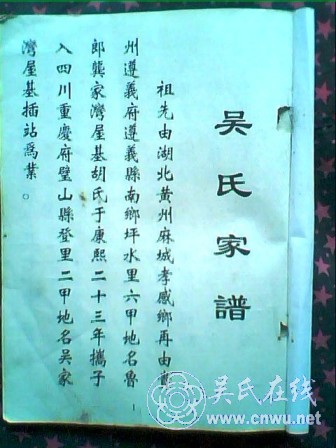 吴氏家譜
祖先由湖北黄州麻城孝感鄉再由貴
州遵義府遵義縣南鄉坪水里六甲地名魯
郎龔家灣屋基胡氏于康熙二十三年攜子
入四川重慶府璧山縣登里二甲地名吴家
灣屋基插站爲業。
1
吴氏在线
www.cnwu.net